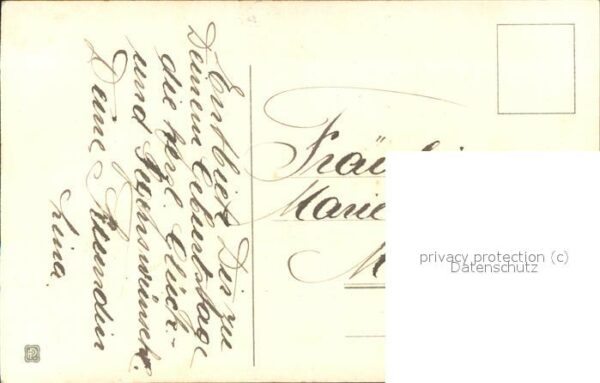 Entbiete Dir zu
Deinem Geburtstage
die herzl. Glück-
und Segenswünsche.
Deine Freundin
Lina.
Fräulei
Marie
M
privacy protection (c)
Datenschutz